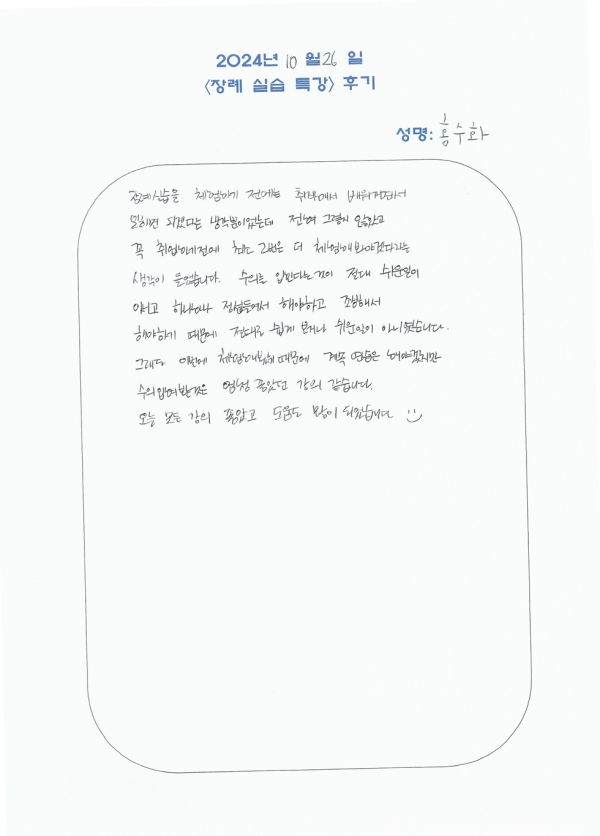 2024년 10 월 26 일
<장례 실습 특강> 후기
성명: 홍수화
장례실습을 체험하기 전에는 취업해서 배워가면서
일하면 되겠다는 생각뿐이었는데 전혀 그렇지 않았고
꼭 취업하기전에 최소 2번은 더 체험해봐야겠다라는
생각이 들었습니다. 수의를 입힌다는것이 절대 쉬운일이
아니고 하나하나 정성들여서 해야하고 조심해서
해야하기 때문에 절대로 쉽게 보거나 쉬운일이 아니였습니다.
그래도 이번에 체험해봤기 때문에 계속 연습은 해야겠지만
수의입혀본것은 엄청 좋았던 강의 같습니다.
오늘 모든 강의 좋았고 도움도 많이 되었습니다 :)